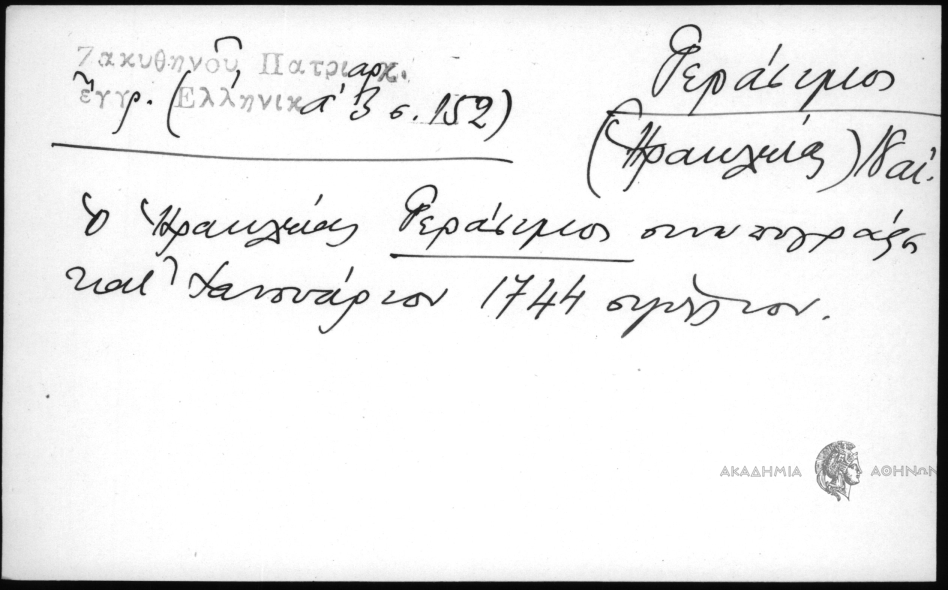 Ζακυθηνοῦ Πατριαρχ.
ἔγγρ. (Ἑλληνικά 3 σ. 152)
Γεράσιμος
(Ἡρακλείας) 18 αἰ.
Ὁ Ἡρακλείας Γεράσιμος συνυπογράφει
κατ' Ἰανουάριον 1744
ΑΚΑΔΗΜΙΑ ΑΘΗΝΩΝ